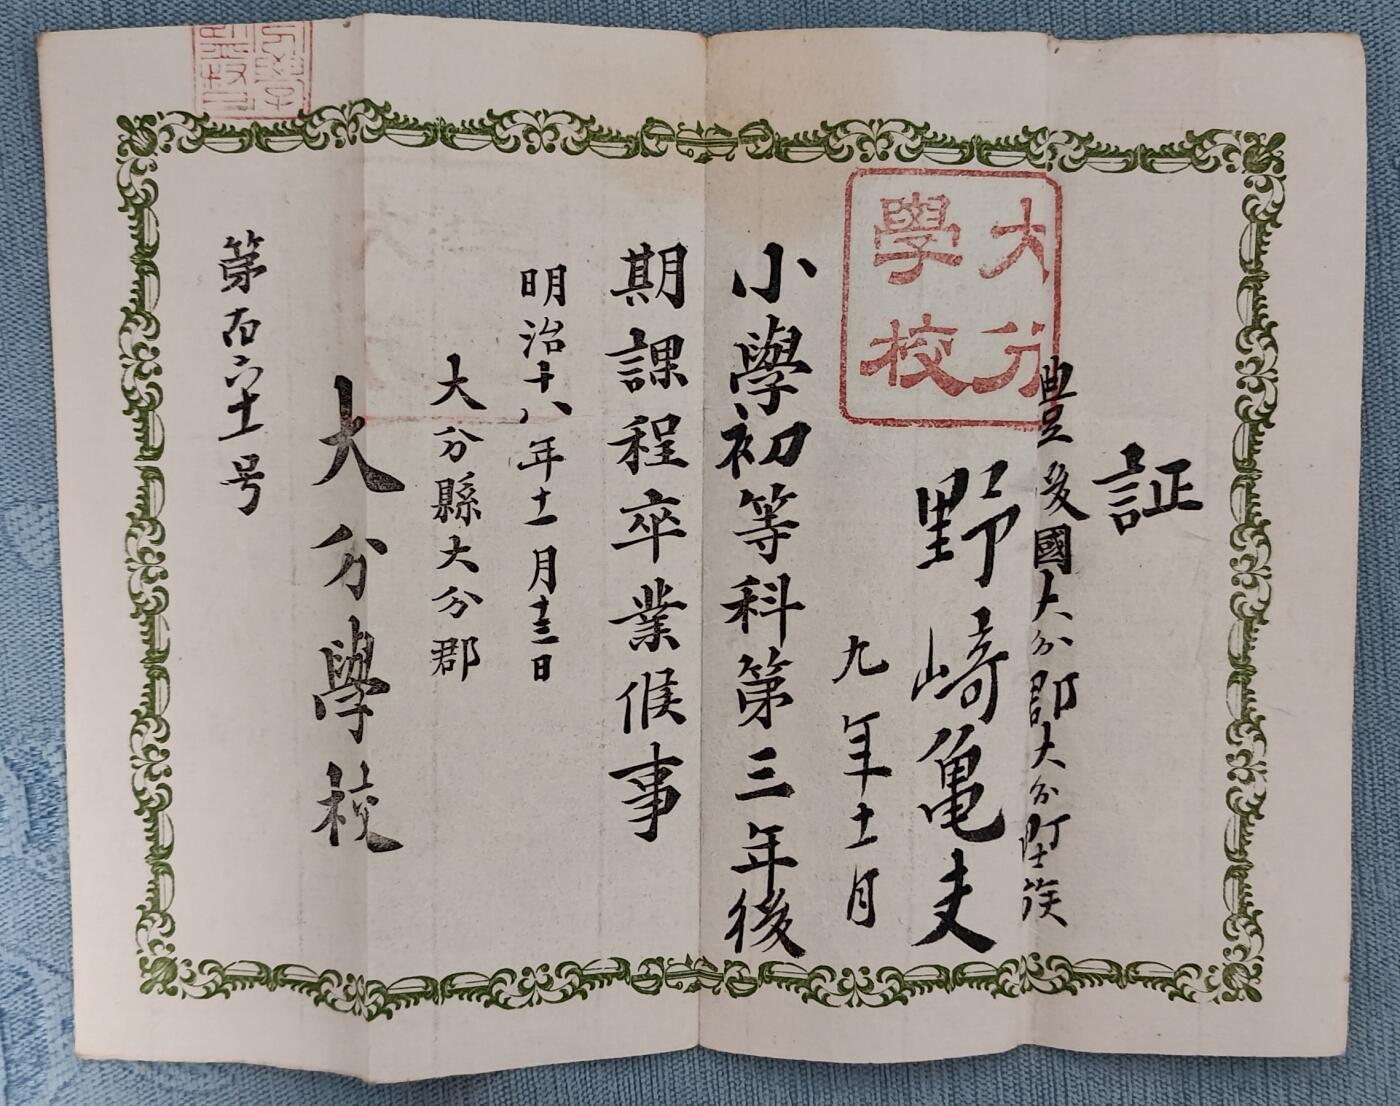 証
豊後國大分郡大分町士族
野﨑亀夫
九年十一月
小學初等科第三年後
期課程卒業候事
明治十八年十一月十三日
大分縣大分郡
大分學校
第百六十一号
大分
學校